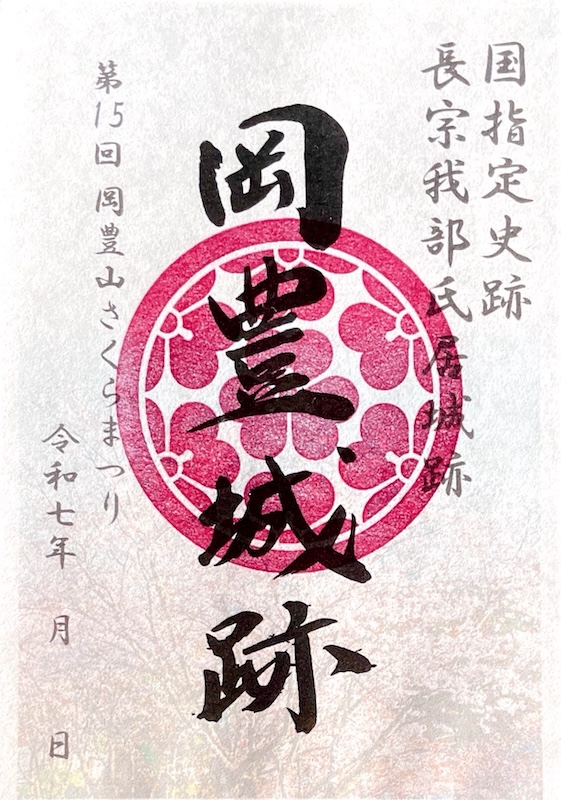 国指定史跡
長宗我部氏居城跡
岡豊城跡
第15回 岡豊山さくらまつり
令和七年　月　日